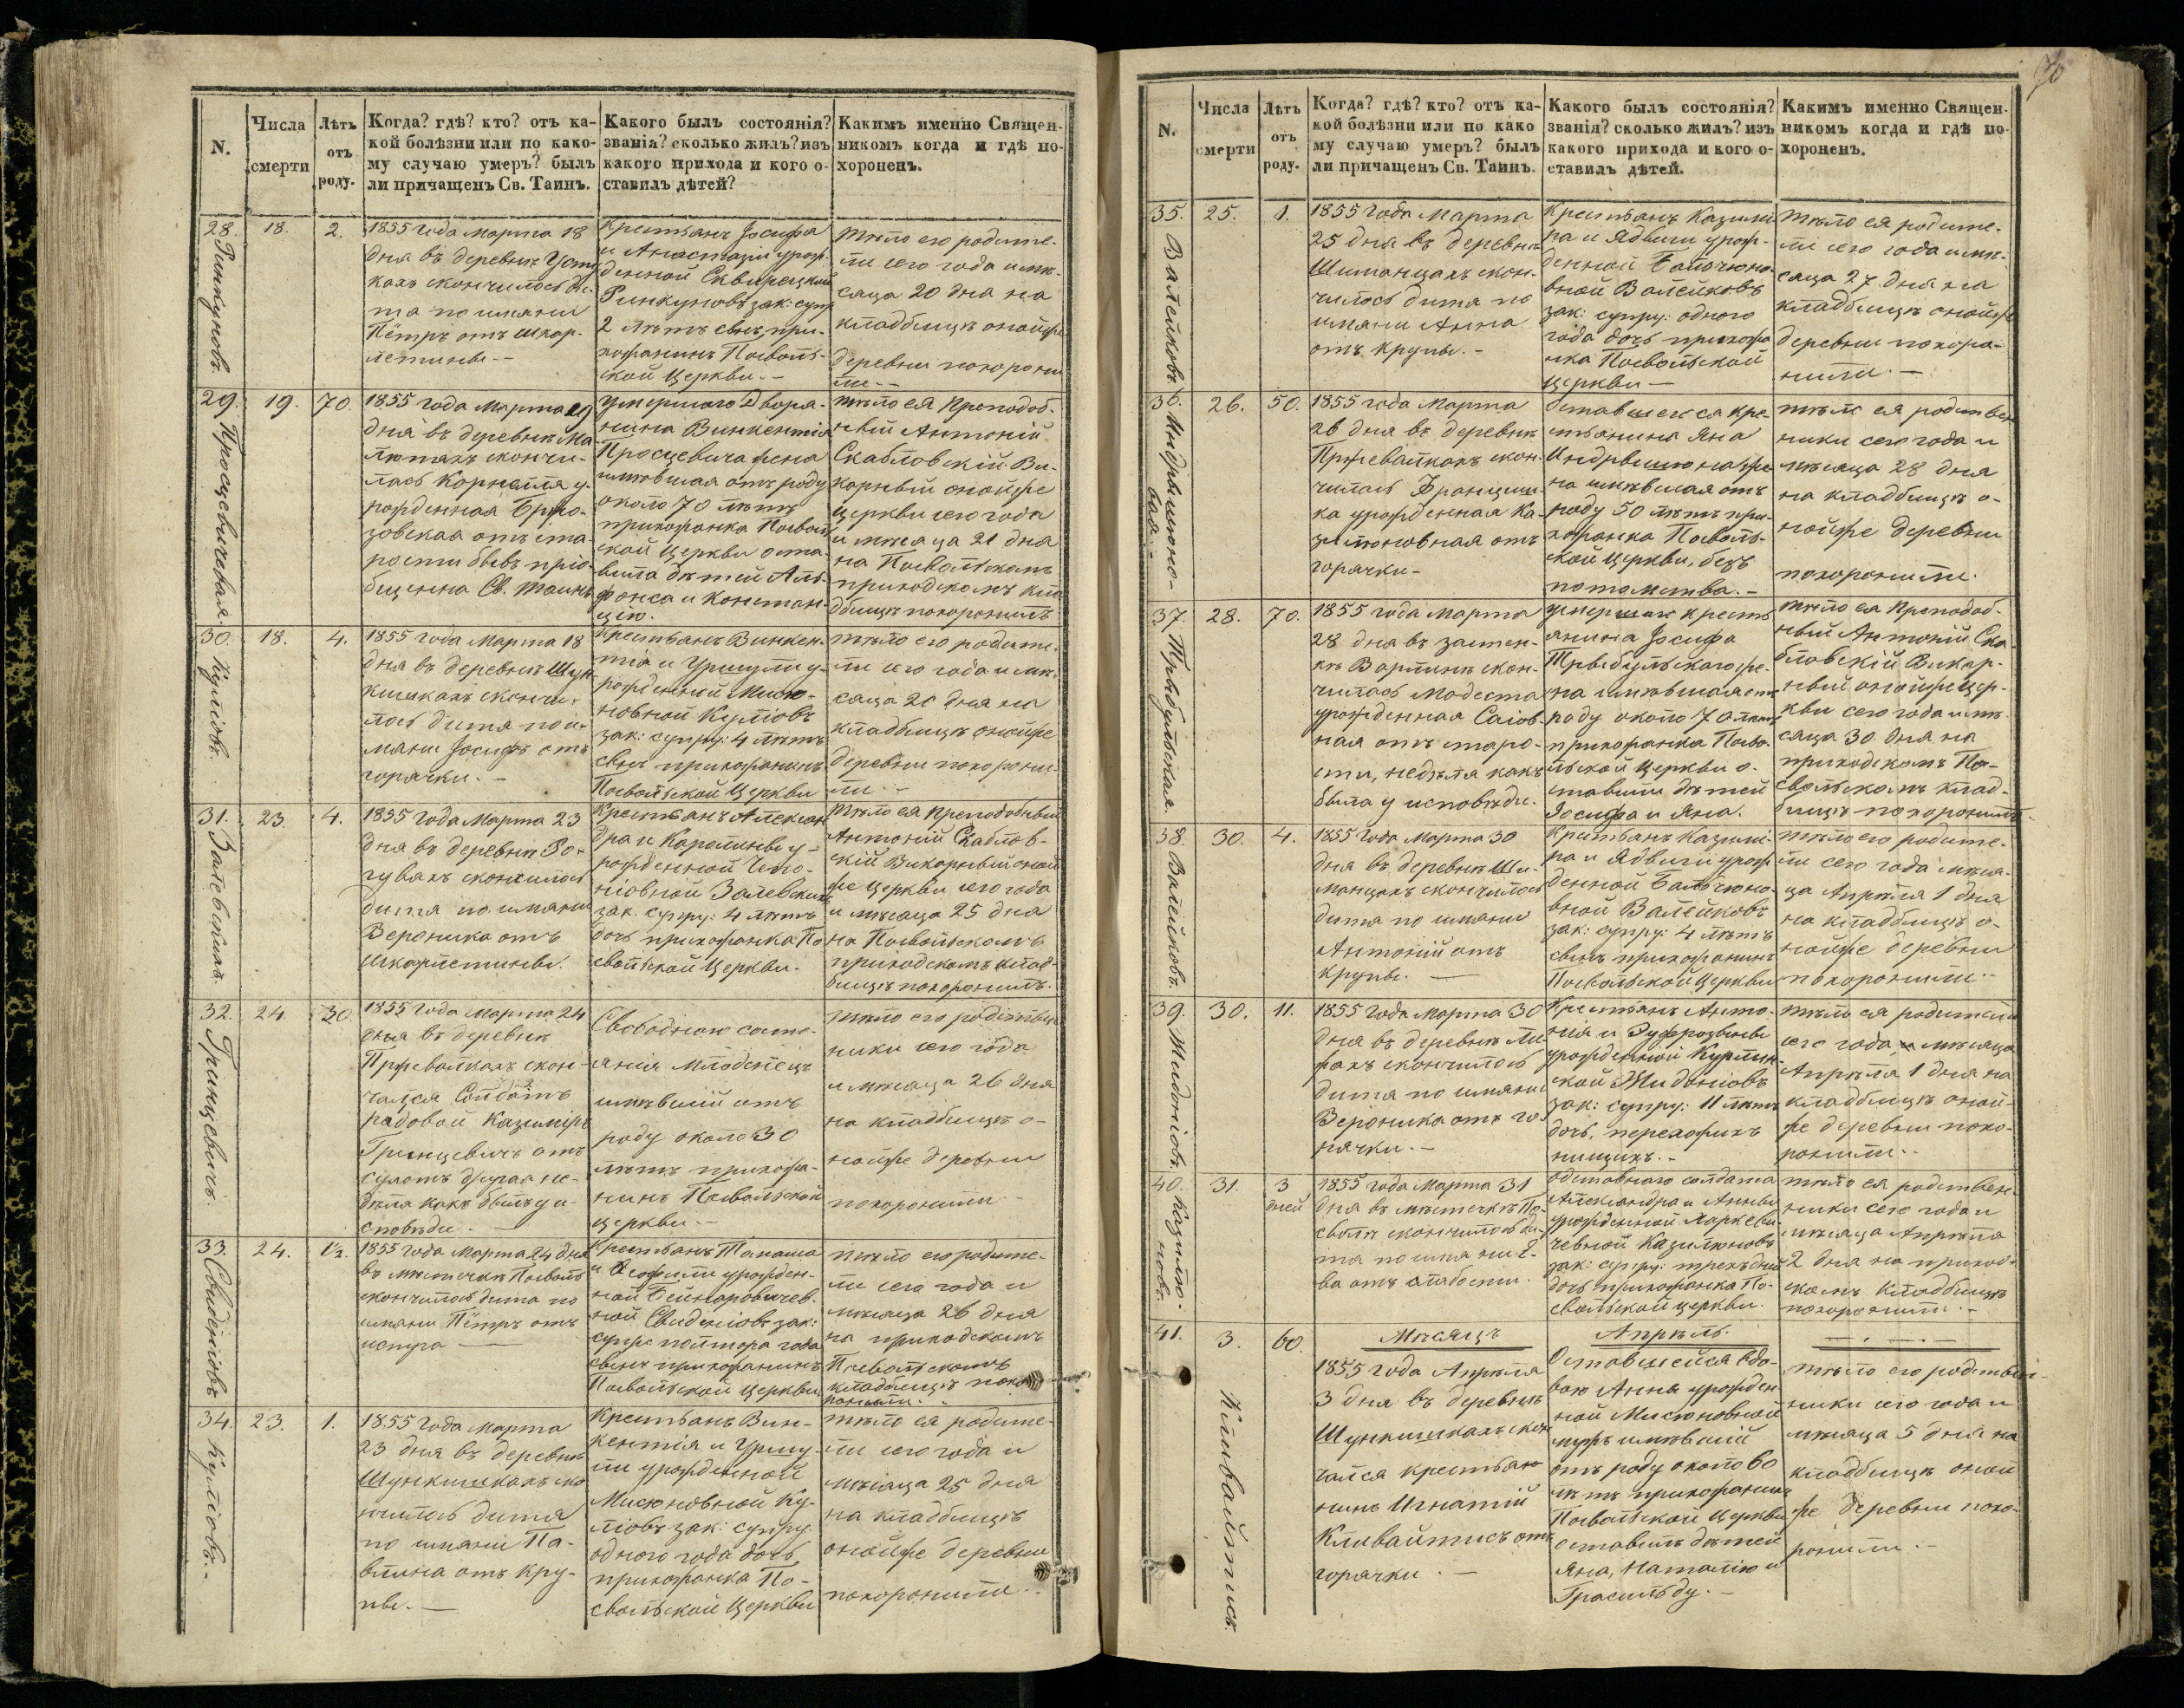 N.
Числа
смерти
Лѣтъ
отъ
роду.
Когда? гдѣ? кто? отъ ка-
кой болѣзни или по како-
му случаю умеръ? былъ
ли причащенъ Св. Таинъ.
Какого былъ состоянія?
званія? сколько жилъ? изъ
какого прихода и кого о-
ставилъ дѣтей?
Какимъ именно Священ-
никомъ когда и гдѣ по-
хороненъ.
28.
Ринкуновъ
18.
2.
1855 года Марта 18
дня въ деревнѣ
кахъ скончилось ди-
тя по имяни
Пётръ отъ шкар-
летины.—
Крестьянъ Іосифа
и Анастазіи урож-
денной Сквирецкой
Ринкуновъ зак: супр
2 лѣтъ сынъ, при-
хожанинъ Посволь-
ской Церкви.—
Тѣло его родите-
ли сего года и мѣ-
сяца 20 дня на
кладбищѣ онойже
деревни похорони
ли.—
29.
Просцевичевая
19.
70.
1855 года Марта 19
дня въ деревнѣ Ма
лютахъ скончи-
лась Корнелля у-
рожденная Бржо-
зовская отъ ста-
рости бывъ пріо-
бщенна Св. Таинъ
умершаго Дворя-
нина Винкентія
Просцевича жена
имѣвшая отъ роду
около 70 лѣтъ
прихожанка Посволь
ской Церкви оста-
вила дѣтей Аль-
фонса и Констан-
цію.
Тѣло ея Преподоб-
ный Антоній
Скабловскій Ви-
карный онойже
Церкви сего года
и мѣсяца 21 дня
на Посвольскомъ
приходскомъ кла
дбищѣ похоронилъ
30.
Куліовъ.
18.
4.
1855 года Марта 18
дня въ деревнѣ Шун
кишкахъ скончи-
лось дитя по и-
мяни Іосифъ отъ
горячки.—
Крестьянъ Винкен-
тія и Уршули у-
рожденной Мисю-
новной Куліовъ
зак: супру: 4 лѣтъ
сынъ прихожанинъ
Посвольской Церкви
Тѣло его родите-
ли сего года и мѣ-
сяца 20 дня на
кладбищѣ онойже
деревни похорони-
ли.—
31.
Залевскихъ.
23.
4.
1855 года Марта 23
дня въ деревнѣ Ро-
гувахъ скончилось
дитя по имяни
Вероника отъ
Шкарлетины.
Крестьянъ Алексан
дра и Каролины у-
рожденной
ніовной Залевскихъ
зак. супру: 4 лѣтъ
дочь прихожанка По
свольской Церкви.
Тѣло ея Преподобный
Антоній Скаблов-
скій Викарный оной
же Церкви сего года
и мѣсяца 25 дня
на Посвольскомъ
приходскомъ клад-
бищѣ похоронилъ.
32.
Гринцевичъ.
24.
30.
1855 года Марта 24
дня въ деревнѣ
Пржевалкахъ скон-
чался Солдатъ
радовой Казимиръ
Гринцевичъ отъ
сухотъ другая не-
дѣля какъ былъ у и-
сповѣди.—
Свободнаго состо-
янія младенецъ
имѣвшій отъ
роду около 30
лѣтъ прихожа-
нинъ Посвольской
церкви.—
Тѣло его родствен
ники сего года
и мѣсяца 26 дня
на кладбищѣ о-
нойже деревни
похоронили.—
33.
Свиденіовъ
24.
1½.
1855 года Марта 24 дня
въ мѣстечкѣ Посволѣ
скончилось дитя по
имяни Пётръ отъ
—
Крестьянъ Томаша
и Теофили урожден-
ной Бейнаровичев-
ной Свиденіовъ зак:
супр: полтора года
сынъ прихожанинъ
Посвольской Церкви
Тѣло его родите-
ли сего года и
мѣсяца 26 дня
на приходскомъ
Посвольскомъ
кладбищѣ похо
ронили.
34.
Куліовъ.—
23.
1.
1855 года Марта
23 дня въ деревнѣ
Шункишкахъ ско
нчилось дитя
по имяни Па-
влина отъ кру-
пы.—
Крестьянъ Вин-
кентія и Уршу-
ли урожденной
Мисюновной Ку-
ліовъ зак: супру.
одного года дочь
прихожанка По-
свольской Церкви
Тѣло ея родите-
ли сего года и
мѣсяца 25 дня
на кладбищѣ
онойже деревни
похоронили.—
70
N.
Числа
смерти
Лѣтъ
отъ
роду.
Когда? гдѣ? кто? отъ ка-
кой болѣзни или по како
му случаю умеръ? былъ
ли причащенъ Св. Таинъ.
Какого былъ состоянія?
званія? сколько жилъ? изъ
какого прихода и кого о-
ставилъ дѣтей.
Какимъ именно Священ-
никомъ когда и гдѣ по-
хороненъ.
35.
Валейковъ
25.
1.
1855 года Марта
25 дня въ деревнѣ
Шиманцахъ скон-
чилось дитя по
имяни Анна
отъ крупы.—
Крестьянъ Казими
ра и Ядвиги урож-
денной Бальчюно-
вной Валейковъ
зак: супру: одного
года дочь прихожа
нка Посвольской
церкви—
Тѣло ея родите-
ли сего года и мѣ-
сяца 27 дня на
кладбищѣ онойже
деревни похоро-
нили.—
36.
Индрышюно-
вая.—
26.
50.
1855 года Марта
26 дня въ деревнѣ
Пржевалкахъ скон-
чилась Францеш-
ка урожденная Ка-
зюновная отъ
горячки—
Оставшегося кре-
стьянина Яна
Индрышюна же-
на имѣвшая отъ
роду 50 лѣтъ при-
хожанка Посволь-
ской Церкви, безъ
потомства.—
Тѣло ея родствен
ники сего года и
мѣсяца 28 дня
на кладбищѣ о-
нойже деревни
похоронили.
37.
Трыбульская.
28.
70.
1855 года Марта
28 дня въ застен-
кѣ Варлинѣ скон-
чилась Модеста
урожденная Саіов-
ная отъ старо-
сти, недѣля какъ
была у исповѣди.
умершаго кресть
янина Іосифа
Трыбульского же-
на имѣвшая отъ
роду около 70 лѣтъ
прихожанка Посво-
льской Церкви о-
ставила дѣтей
Іосифа и Яна.
Тѣло ея Преподоб-
ный Антоній Ска-
бловскій Викар-
ный онойже цер-
кви сего года и мѣ-
сяца 30 дня на
приходскомъ По-
свольскомъ клад-
бищѣ похоронилъ.
38.
Валейковъ.
30.
4.
1855 года Марта 30
дня въ деревнѣ Ши-
манцахъ скончилось
дитя по имяни
Антоній отъ
крупы.—
Крестьянъ Казими-
ра и Ядвиги урож
денной Бальчюно-
вной Валейковъ
зак: супру: 4 лѣтъ
сынъ прихожанинъ
Посвольской Церкви
Тѣло его родите-
ли сего года мѣся-
ца Апрѣля 1 дня
на кладбищѣ о-
нойже деревни
похоронили.—
39.
Жидоніовъ.
30.
11.
1855 года Марта 30
дня въ деревнѣ Ли-
рахъ скончилось
дитя по имяни
Вероника отъ го-
рячки.—
Крестьянъ Анто-
нія и Эуфрозыны
урожденной
Жидоніовъ
зак: супру: 11 лѣтъ
дочь,
Тѣло ея родители
сего года мѣсяца
Апрѣля 1 дня на
кладбищѣ оной-
же деревни похо-
ронили.—
40.
Казилю-
новъ.
31.
3
дней
1855 года Марта 31
дня въ мѣстечкѣ По-
сволѣ скончилось ди-
тя по имяни Е-
ва отъ слабости.
отставного солдата
Александра и Анны
урожденной Ларкеви-
чевной Казилюновъ
зак: супру: трехъ дней
дочь прихожанка По-
свольской церкви.
Тѣло ея родствен-
ники сего года и
мѣсяца Апрѣля
2 дня на приход-
скомъ кладбищѣ
похоронили.—
Мѣсяцъ Апрѣль.
41.
Кливайтисъ.
3.
60.
1855 года Апрѣля
3 дня въ деревнѣ
Шункишкахъ скон
чался крестья
нинъ Игнатій
Кливайтисъ отъ
горячки.—
Оставшейся вдо-
вою Анны урожден
ной Мисюновной
мужъ имѣвшій
отъ роду около 60
лѣтъ прихожанинъ
Посвольской Церкви
оставилъ дѣтей
Яна, Наталію и
Грасильду.—
Тѣло его родствен-
ники сего года и
мѣсяца 5 дня на
кладбищѣ оной
же деревни похо-
ронили.—